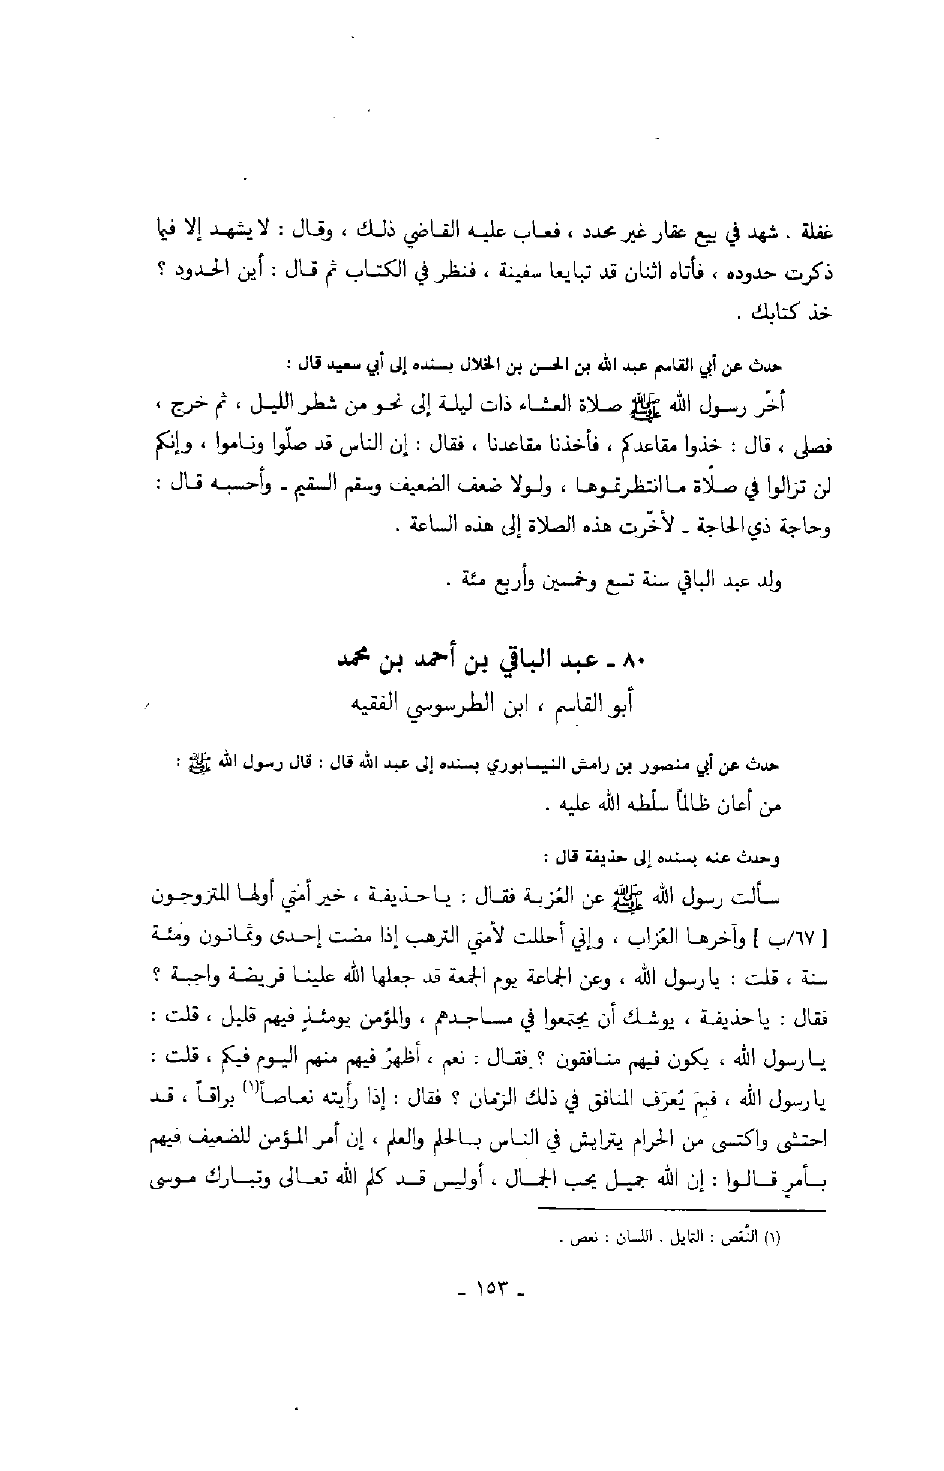 غفلة . شهد في بيع عقار غير محدد ، فعاب عليه القاضي ذلك ، وقال : لا يشهد إلا فيما
ذكرت حدوده ، فأتاه اثنان قد تبايعا سفينة ، فنظر في الكتاب ثم قال : أين الحدود ؟
خذ كتابك .
حدث عن أبي القاسم عبد الله بن الحسن بن الخلال بسنده إلى أبي سعيد قال :
أخّر رسول الله ﷺ صلاة العشاء ذات ليلة إلى نحو من شطر الليل ، ثم خرج ،
فصلى ، قال : خذوا مقاعدكم ، فأخذنا مقاعدنا ، فقال : إن الناس قد صلّوا وناموا ، وإنكم
لن تزالوا في صلاة ما انتظرتموها ، ولولا ضعف الضعيف وسقم السقيم ـ وأحسبه قال :
وحاجة ذي الحاجة ـ لأخّرت هذه الصلاة إلى هذه الساعة .
ولد عبد الباقي سنة تسع وخمسين وأربع مئة .
٨٠ ـ عبد الباقي بن أحمد بن محمد
أبو القاسم ، ابن الطرسوسي الفقيه
حدث عن أبي منصور بن رامش النيسابوري بسنده إلى عبد الله قال : قال رسول الله ﷺ :
من أعان ظالماً سلّطه الله عليه .
وحدث عنه بسنده إلى حذيفة قال :
سألت رسول الله ﷺ عن العُزبة فقال : يا حذيفة ، خير أمتي أولها المتزوجون
[ ٦٧/ب ] وآخرها العزّاب ، وإني أحللت لأمتي الترهب إذا مضت إحدى وثمانون ومئة
سنة ، قلت : يا رسول الله ، وعن الجماعة يوم الجمعة قد جعلها الله علينا فريضة واجبة ؟
فقال : يا حذيفة ، يوشك أن يجتمعوا في مساجدهم ، والمؤمن يومئذٍ فيهم قليل ، قلت :
يا رسول الله ، يكون فيهم منافقون ؟ فقال : نعم ، أظهرُ فيهم منهم اليوم فيكم ، قلت :
يا رسول الله ، فبمَ يُعرَف المنافق في ذلك الزمان ؟ فقال : إذا رأيته نعاصاً(١) براقاً ، قد
احتشى واكتسى من الحرام يترايش في الناس بالحلم والعلم ، إن أمر المؤمن للضعيف فيهم
بأمرٍ قالوا : إن الله جميل يحب الجمال ، أوليس قد كلم الله تعالى وتبارك موسى
(١) النُّعص : التمايل . اللسان : نعص .
ـ ١٥٣ ـ